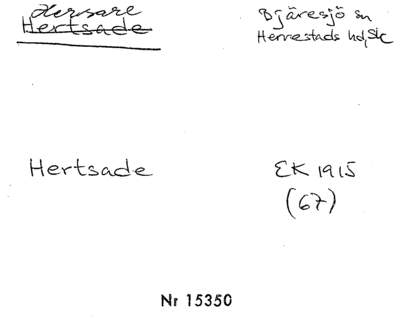 Hersare
Hertsade
Bjäresjö sn
Herrestads hd, Sk
Hertsade
EK 1915
(67)
Nr 15350